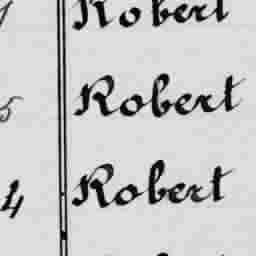 Robert
5 Robert
4 Robert